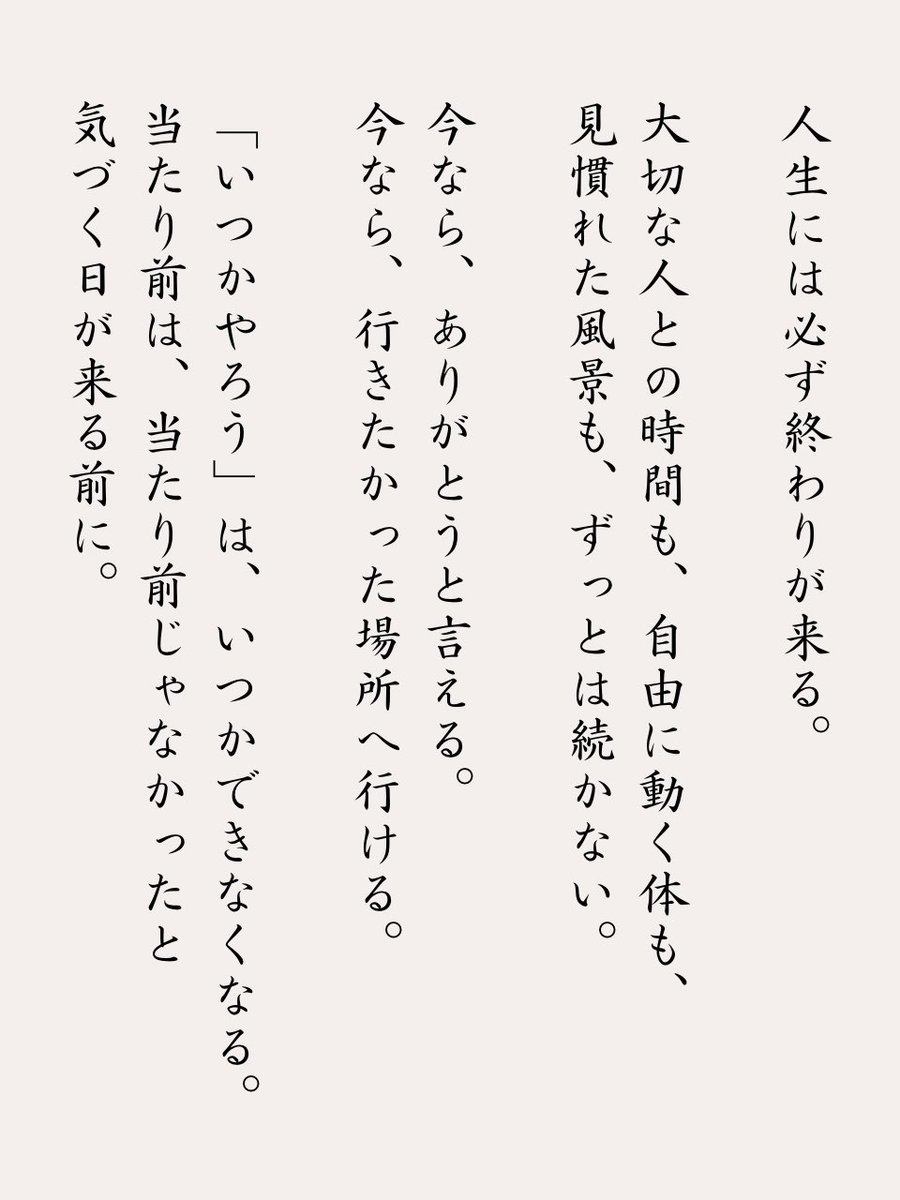 人生には必ず終わりが来る。
大切な人との時間も、自由に動く体も、
見慣れた風景も、ずっとは続かない。
今なら、ありがとうと言える。
今なら、行きたかった場所へ行ける。
「いつかやろう」は、いつかできなくなる。
当たり前は、当たり前じゃなかったと
気づく日が来る前に。